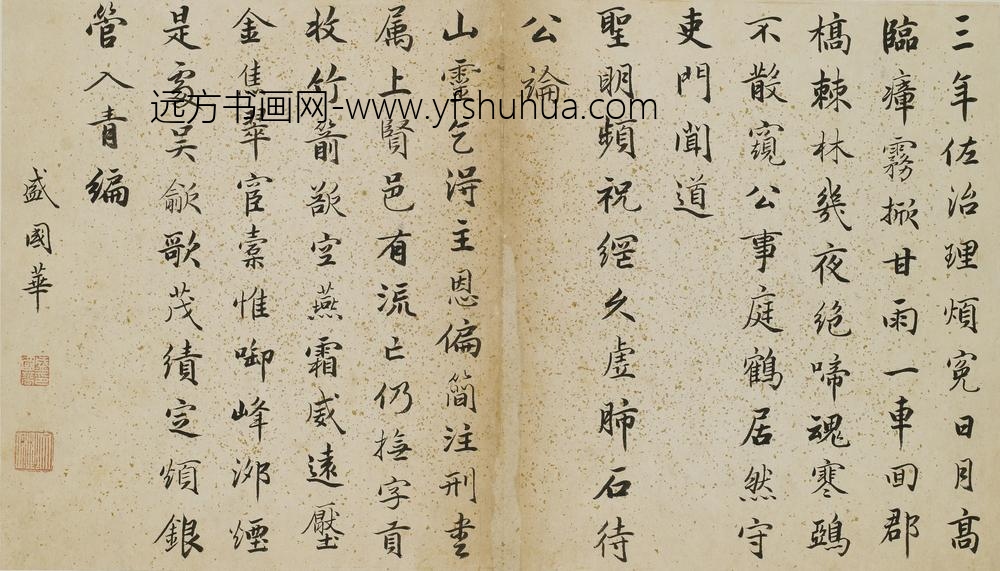 三年佐治理煩冤日月高
臨瘴霧掀甘雨一車回郡
槁棘林幾夜絶啼魂寒鵶
不散窺公事庭鶴居然守
吏門聞道
聖明頻祝網久虗肺石待
公論
山靈乞得主恩偏簡注刑書
属上賢邑有流亡仍撫字貢
收竹箭欲空燕霜威遠壓
金焦翠宦橐惟啣峰泖煙
是處吴歈歌茂績定頒銀
管入青編
盛國華
远方书画网-www.yfshuhua.com